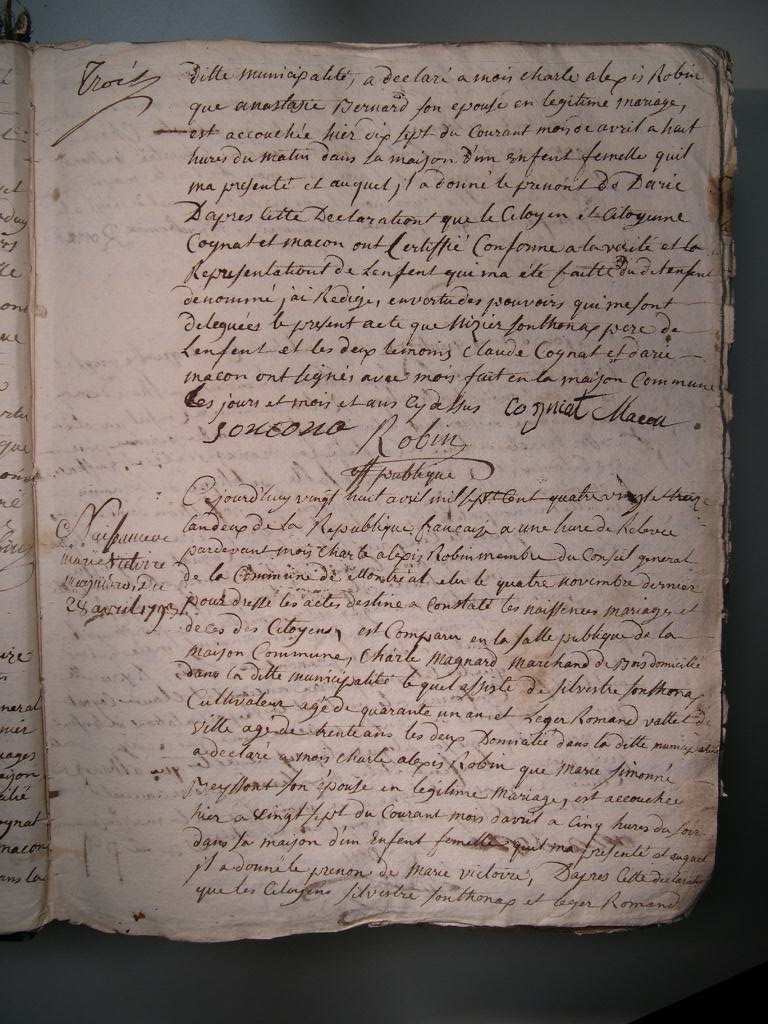 Troit
ditte municipalité, a declaré a mois charle alexis Robin
que anastasie Bernard son epouse en legitime mariage,
est accouchée hier dix sept du Courant mois de avril a huit
hures du matin dans sa maison d'un enfent femelle quil
ma présenté et auquel jl a donné le prenont de Darie
Dapres cette Declarationt que le Citoyen et Citoyenne
Cognat et macon ont Certiffié Conforme a la verité et la
Representationt de Lenfent qui ma été faitte du dit enfent
denommé jai Redigé, en vertu des pouvoirs qui me sont
deleguées le present acte que sonthonax pere de
Lenfent et les deux temoins Claude Cognat et darie
macon ont signés avec mois fait en la maison Commune
Les jours et mois et ans cy dessus cogniat Macon
sontona Robin
off publique
Naissance de
marie victoire
28 avril 1793
Cejourdhuy vingt huit avril mil sept Cent quatre vingt treize
landeux de la Republique française a une hure de Relevee
pardevant mois Charle alexis Robin membre du Conseil general
de la Commune de Montreal elu le quatre novembre dernier
pour dressé les actes destiné a Constaté les naissences mariages et
deces des Citoyens, est Comparu en la salle publique de la
maison Commune, Charle magnard marchand de Bois domicillié
dans la ditte municipalité le quel assiste de silvestre sonthonax
Cultivateur agé de quarante un an et Leger Romand vallet de
ville agé de trente ans les deux Domicilié dans la ditte municipalité
a declaré a mois charle alexis Robin que Marie simonne
Beyssont son épouse en legitime Mariage, est accouchée
hier a vingt sept du Courant mois davril a Cinq hures du soir
dans sa maison d'un Enfent femelle quil ma présenté et auquel
jl a donné le prenon de marie victoire, Dapres cette declarationt
que les Citoyens silvestre sonthonax et leger Romand